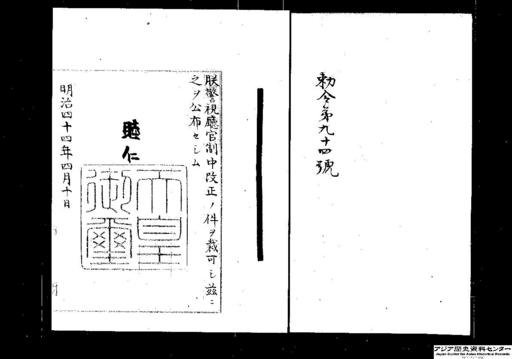 勅令第九十四號
朕警視廳官制中改正ノ件ヲ裁可シ茲ニ
之ヲ公布セシム
睦仁
天皇
御璽
明治四十四年四月十日
アジア歴史資料センター
Japan Center for Asian Historical Records